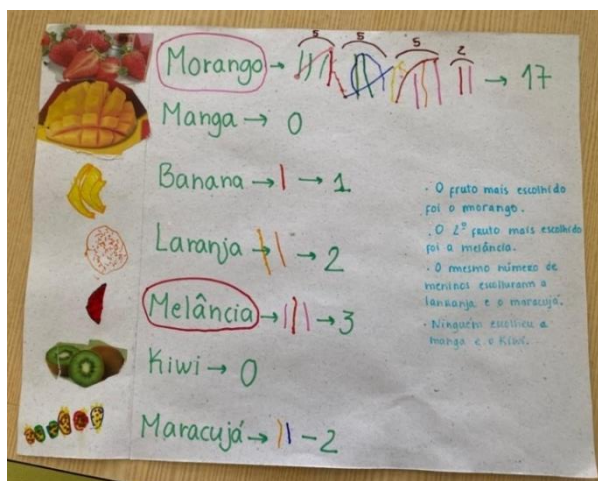 5 5 5 2
Morango → → 17
Manga → 0
Banana → → 1
Laranja → 2
Melância → → 3
Kiwi → 0
Maracujá → - 2
· O fruto mais escolhido
foi o morango.
· O 2º fruto mais escolhido
foi a melância.
· O mesmo número de
meninos escolheram a
lanranja e o maracujá.
· Ninguém escolheu a
manga e o Kiwi.